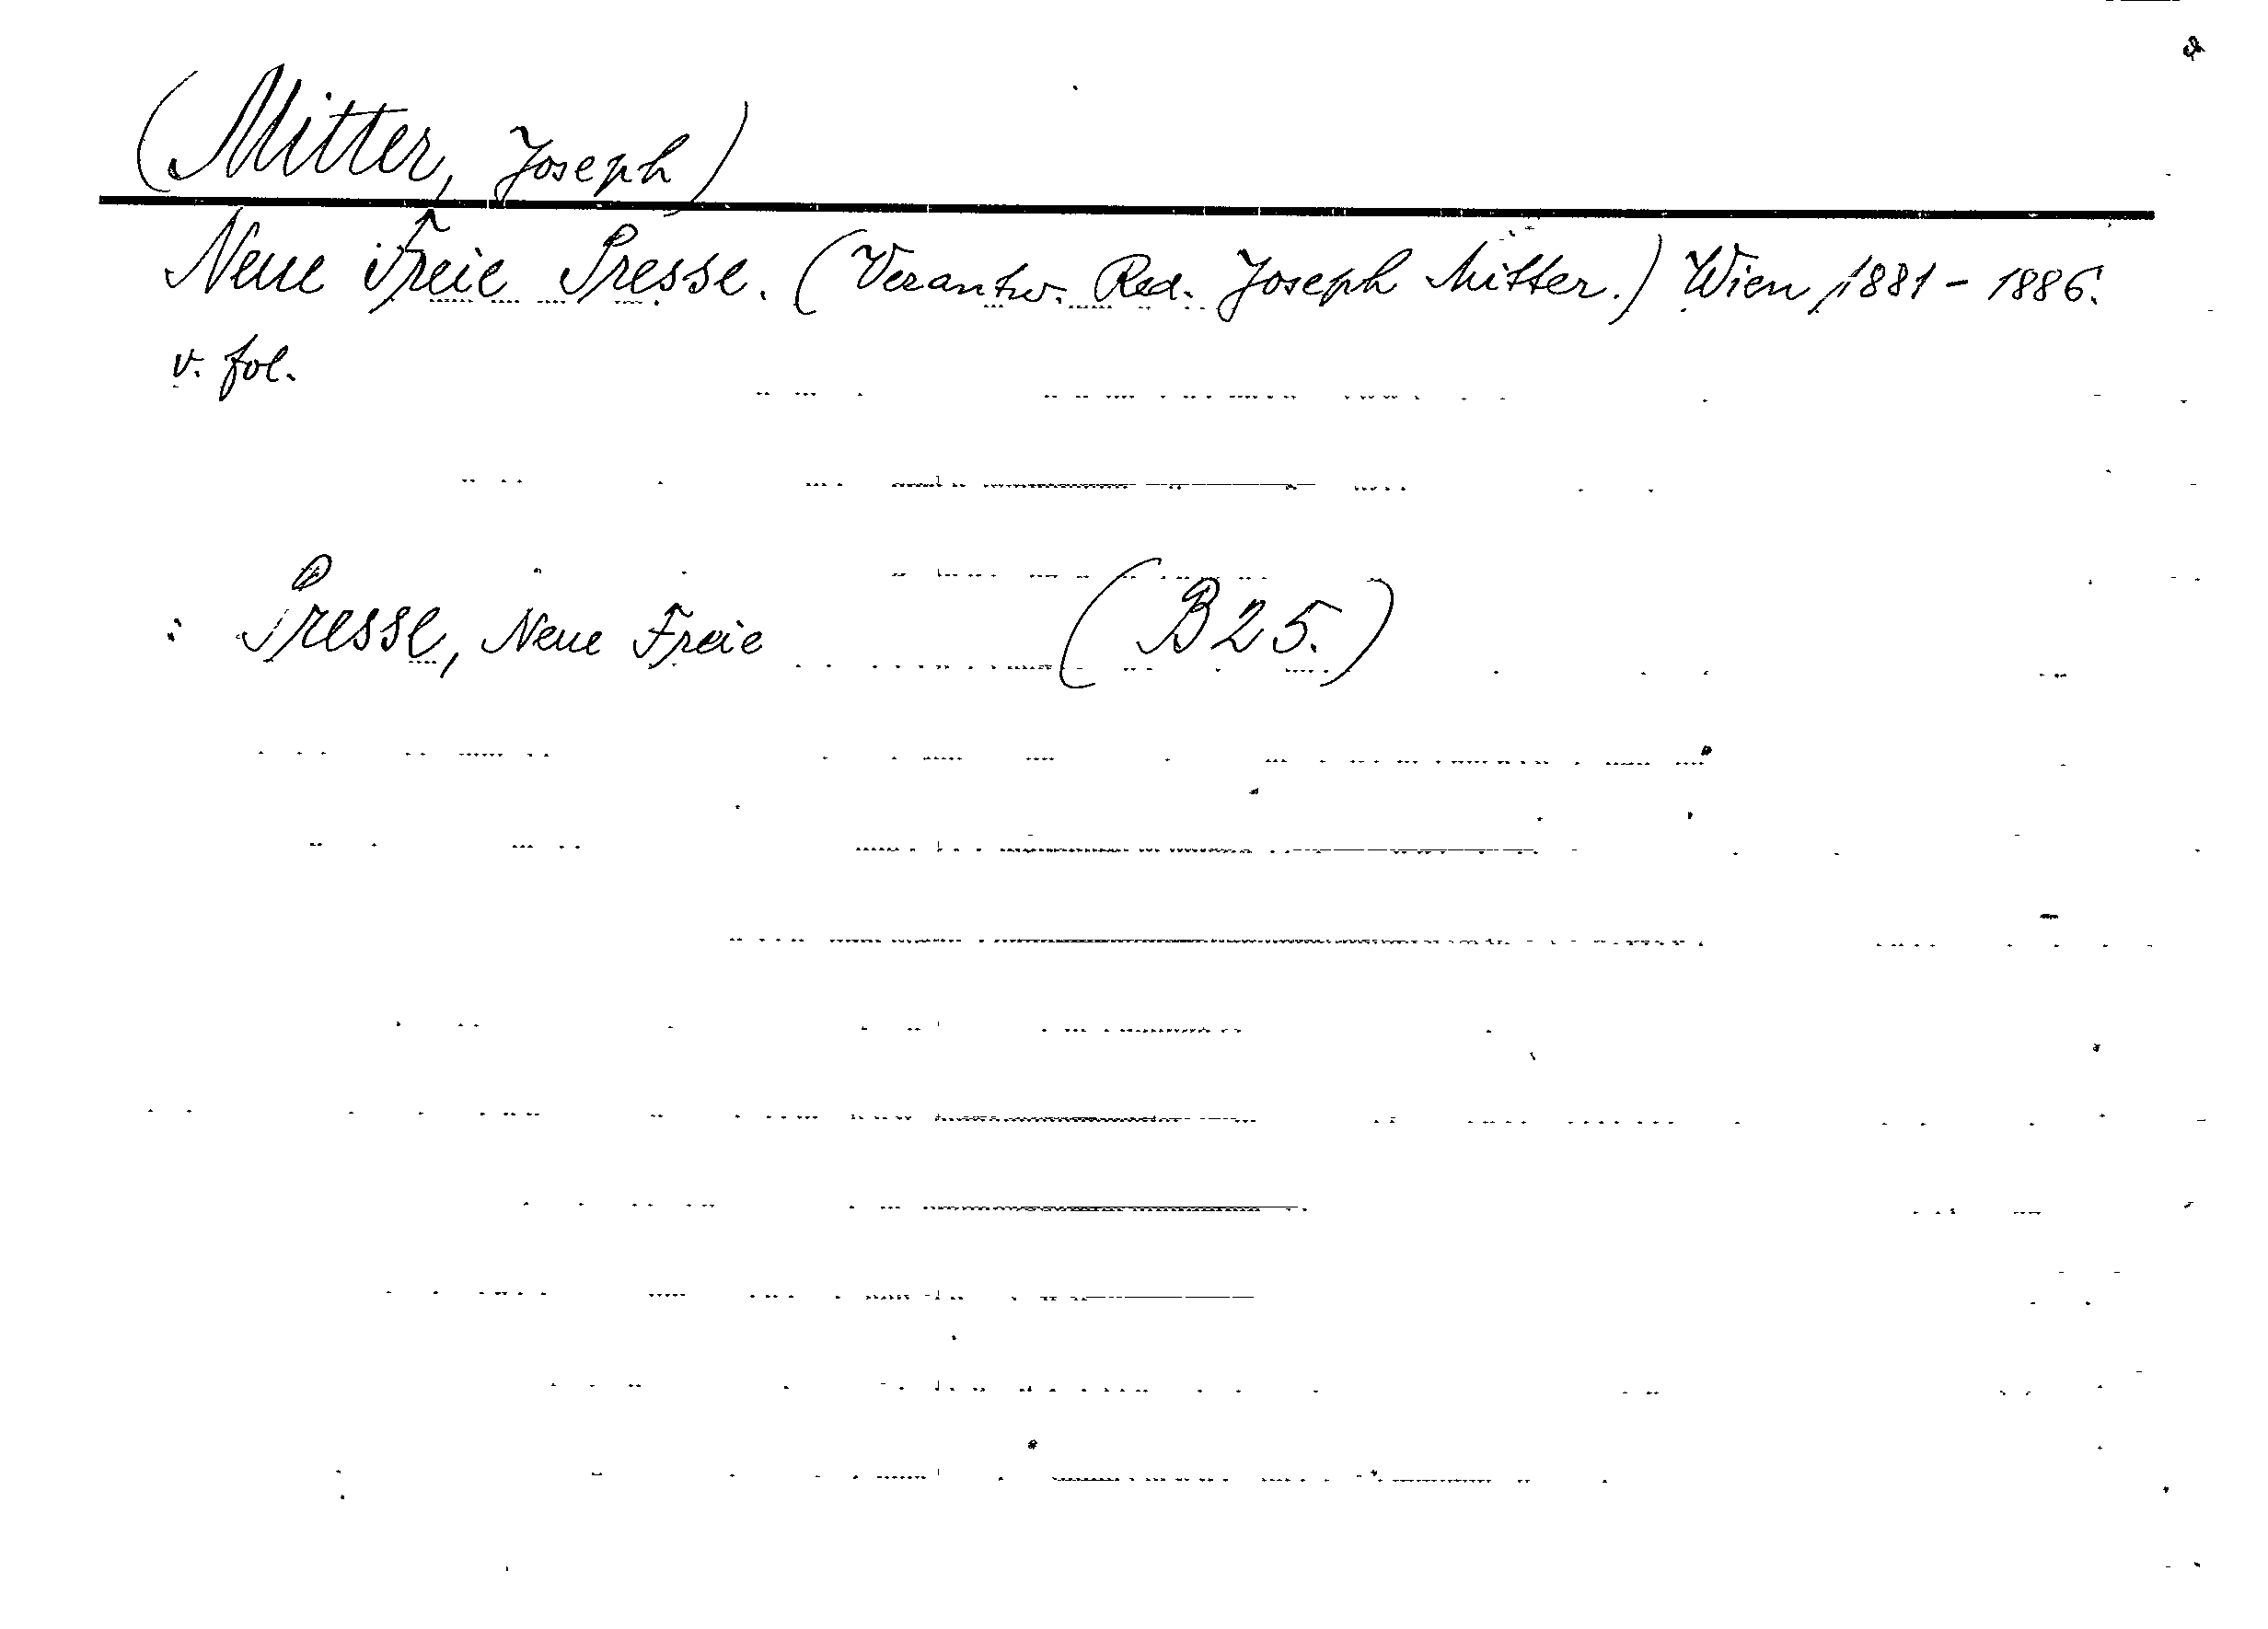 (Mitter, Joseph)
Neue Freie Presse. (Verantw. Red. Joseph Mitter.) Wien, 1881 - 1886.
v. fol.
: Presse, Neue Freie (B 25.)